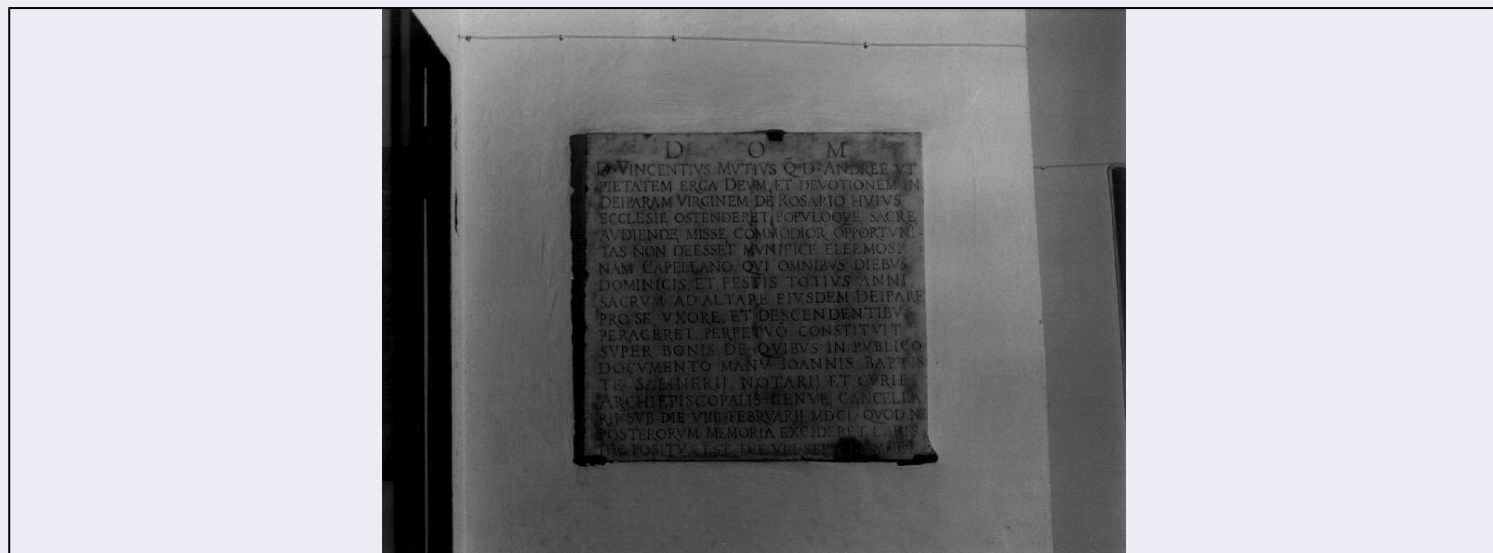 D O M
D. VINCENTIVS MVTIVS Q. D. ANDREE VT
PIETATEM ERGA DEVM, ET DEVOTIONEM IN
DEIPARAM VIRGINEM DE ROSARIO HVIVS
ECCLESIE OSTENDERET, POPVLOQVE SACRE
AVDIENDE MISSE COMMODIOR OPPORTVNI-
TAS NON DEESSET MVNIFICE ELEEMOSI
NAM CAPELLANO, QVI OMNIBVS DIEBVS
DOMINICIS, ET FESTIS TOTIVS ANNI
SACRVM AD ALTARE EIVSDEM DEIPARE
PRO SE, VXORE, ET DESCENDENTIBVS
PERAGERET PERPETVO CONSTITVIT
SVPER BONIS DE QVIBVS IN PVBLICO
DOCVMENTO MANV IOANNIS BAPTIS
TE SALINERIJ NOTARIJ ET CVRIE
ARCHIEPISCOPALIS GENVE CANCELLA
RIJ SVB DIE VIIII FEBRVARIJ MDCL QVOD NE
POSTERORVM MEMORIA EXCIDERET LAPIS
HIC POSITVS EST DIE VIII